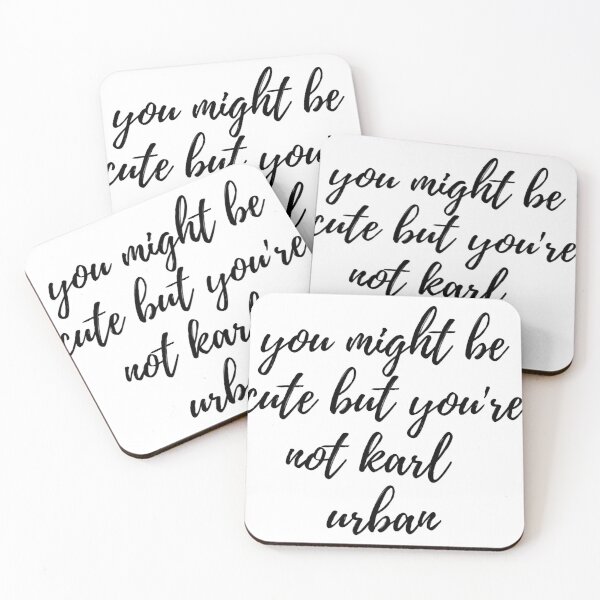 you might be
cute but you'
you might be
cute but you're
not karl
you might be
cute but you're
not karl
urb
you might be
cute but you're
not karl
urban